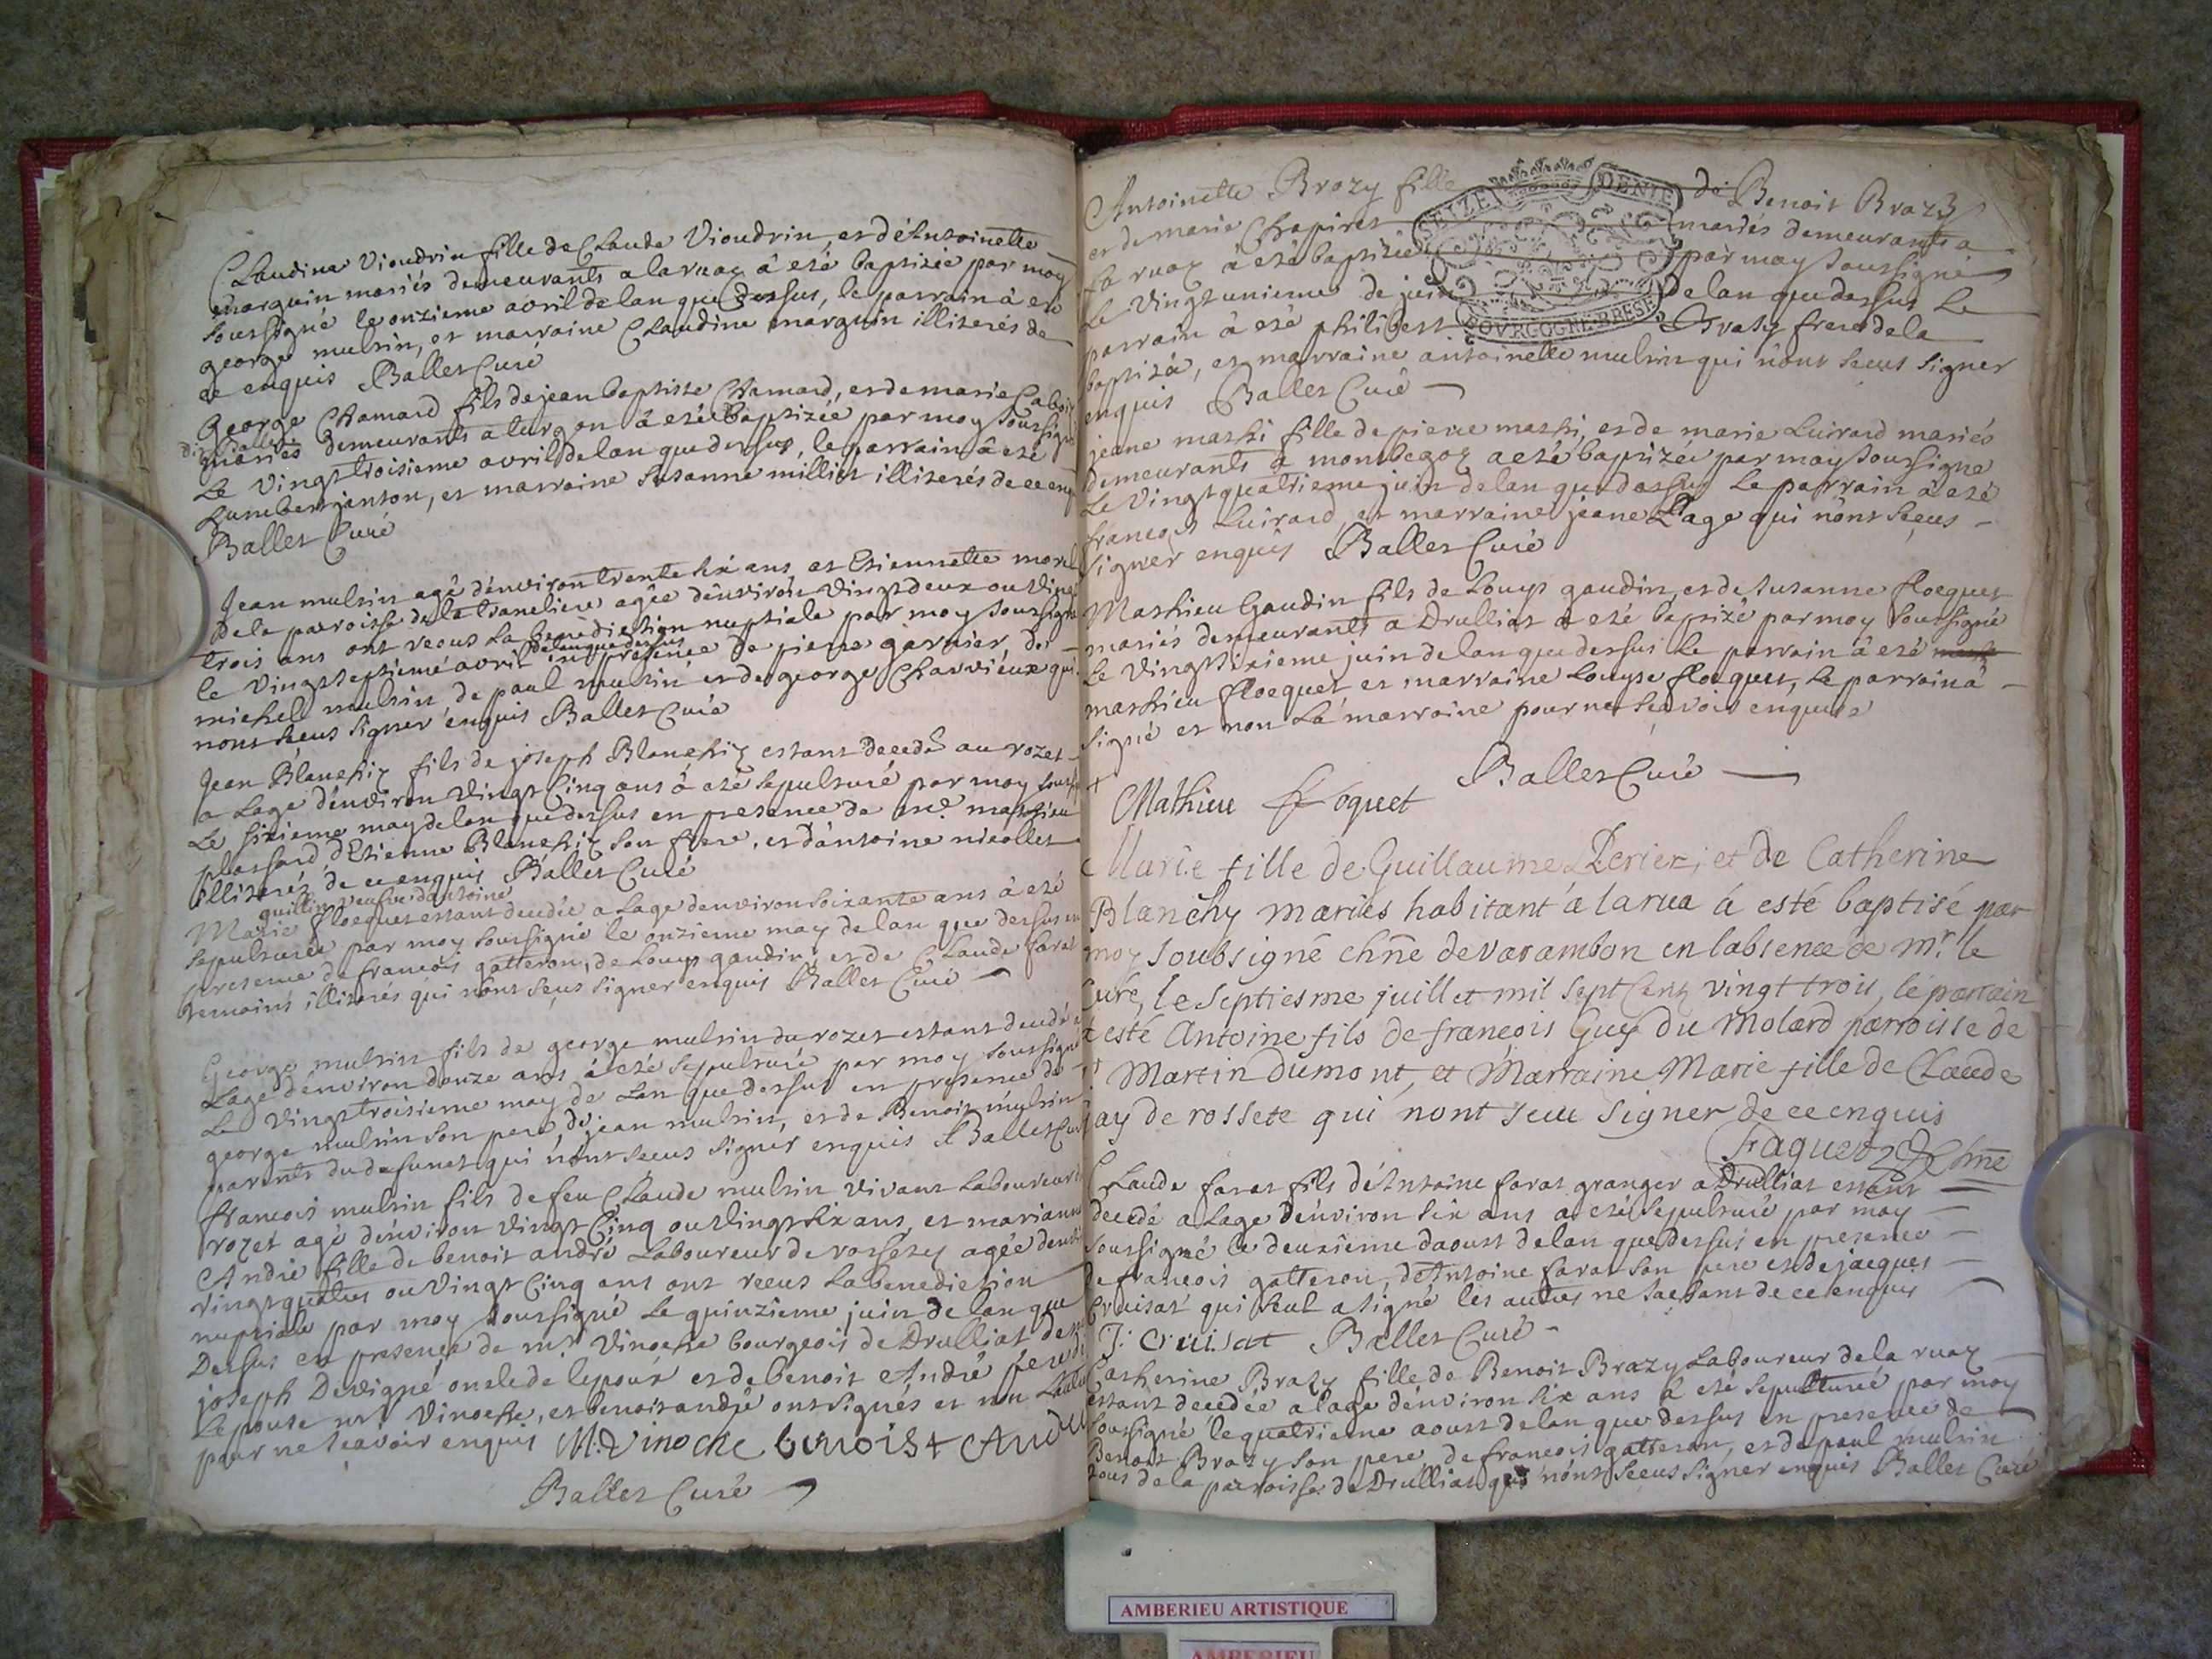 Claudine Vioudrin fille de Claude Vioudrin, et d'Antoinette
marguin mariés demeurants a la ruaz â eté baptizée par moy
soussigné le onzieme avril de lan que dessus, le parrain â eté
george mulsin, et marraine Claudine marguin illiterés de
ce enquis Ballet Curé
George Chamard fils de jean baptiste Chamard, et de marie
mariés demeurants a turgon â eté Baptizée par moy soussigné
Le vingt troisieme avril de lan que dessus, le parrain â eté
Lambert janton, et marraine Susanne milliet illiterés de ce enq
Ballet Curé
Jean mulsin agé d'environ trente six ans et Etiennette morel
de la parroisse de la traneliere agée d'environ vingt deux ou vingt
trois ans ont receus la benediction nuptiale par moy soussigné
de lan que dessus
le vingt septieme avril en presence de pierre garnier, de
michel mulsin, de paul mulsin et de george Charvieux qui
nont sceus signer enquis Ballet Curé
Jean Blanchiz fils de joseph Blanchiz estant decedé au rozet
a Lage d'environ vingt Cinq ans â eté sepulturé par moy souss
Le sixieme may de lan que dessus en presence de mre mathieu
plassard d'Etienne Blanchiz son frere, et d'antoine nicollet
illiterés de ce enquis Ballet Curé
quillin veufve d'antoine
Marie floquet estant decedée a Lage denviron soixante ans â eté
sepulturée par moy soussigné le onzieme may de lan que dessus en
presence de francois gatteron, de Louys gaudin, et de Claude farat
temoins illiterés qui nont sçeus signer enquis Ballet Curé
George mulsin fils de george mulsin du rozet estant decedé a
Lage d'environ douze ans â eté sepulturé par moy soussigné
Le vingt troisieme may de Lan que dessus en presence de
george mulsin son pere, de jean mulsin, et de Benoit mulsin
parents du defunct qui nont sceus signer enquis Ballet Curé
francois mulsin fils de feu Claude mulsin vivant Laboureur
rozet agé d'environ vingt Cinq ou vingt six ans, et marianne
André fille de benoit andre Laboureur de rossety agée denvi
vingt quatre ou vingt Cinq ans ont receus La benediction
nuptiale par moy soussigné Le quinzieme juin de lan que
Dessus en presence de mr vinoche bourgeois de Drulliat de
joseph Devigné oncle de lepoux et de benoit André pere de
Lepouse mr vinoche, et benoit andré ont signés et non
pour ne sçavoir enquis M. Vinoche benoist André
Ballet Curé
Antoinette Brazy fille de Benoit Brazy
et de marie Chapiret mariés demeurants a
la ruaz â eté baptizée par moy soussigné
Le Vingt unieme de juin de lan que dessus Le
parrain â eté philibert Brazy frere de la
baptizée, et marraine antoinette mulsin qui nont sceus signer
enquis Ballet Curé
jeane mathi fille de pierre mathi, et de marie Luirard mariés
demeurants a montbegoz a eté baptizée par moy soussigné
Le vingt quatrieme juin de lan que dessus Le parrain â eté
francois Luirard et marraine jeane Lage qui nont sceus
signer enquis Ballet Curé
Mathieu Gaudin fils de Louys gaudin, et de susanne floquet
mariés demeurants a Drulliat a eté baptizé par moy soussigné
Le vingt sixieme juin de lan que dessus Le parrain â eté
mathieu floquet et marraine Louyse floquet, Le parrain â
signé et non La marraine pour ne sçavoir enquise
Ballet Curé
Mathieu ffoquet
Marie fille de Guillaume Perier, et de Catherine
Blanchy mariés habitant á la rua á esté baptisé par
moy soubsigné chne de varambon en labsence de Mr. le
Curé, le septiesme juillet mil sept Cent vingt trois, le parrain
a esté Antoine fils de francois Guy du Molard parroisse de
St Martin Dumont, et Marraine Marie fille de Claude
jay de rossete qui nont sceu signer de ce enquis
fraquet Chne
Claude farat fils d'Antoine farat granger a Drulliat estant
decedé a Lage d'environ six ans a eté sepulturé par moy
soussigné le deuxieme daoust de lan que dessus en presence
de francois gatteron, d'Antoine farat son pere et de jacques
Cruisat qui seul a signé les autres ne sachant de ce enquis
J: cruisat Ballet Curé
Catherine Brazy fille de Benoit Brazy Laboureur de la ruaz
estant decedée a lage d'environ six ans â eté sepulturée par moy
soussigné le quatrieme aoust de lan que dessus en presence de
Benoit Brazy son pere, de francois gatteron, et de paul mulsin
tous de la parroisse de Drulliat qui nont sceus signer enquis Ballet Curé
SEIZE DENIE
BOVRGOGNE BRESSE
AMBERIEU ARTISTIQUE
AMBERIEU